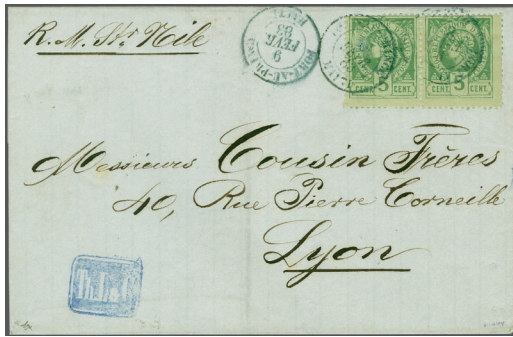 R. M. Str Nile
PORT-AU-PRINCE
9
FEVR
83
HAITI
5 5
CENT. CENT. CENT. CENT.
Messieurs Cousin Frères
40, Rue Pierre Corneille
Lyon